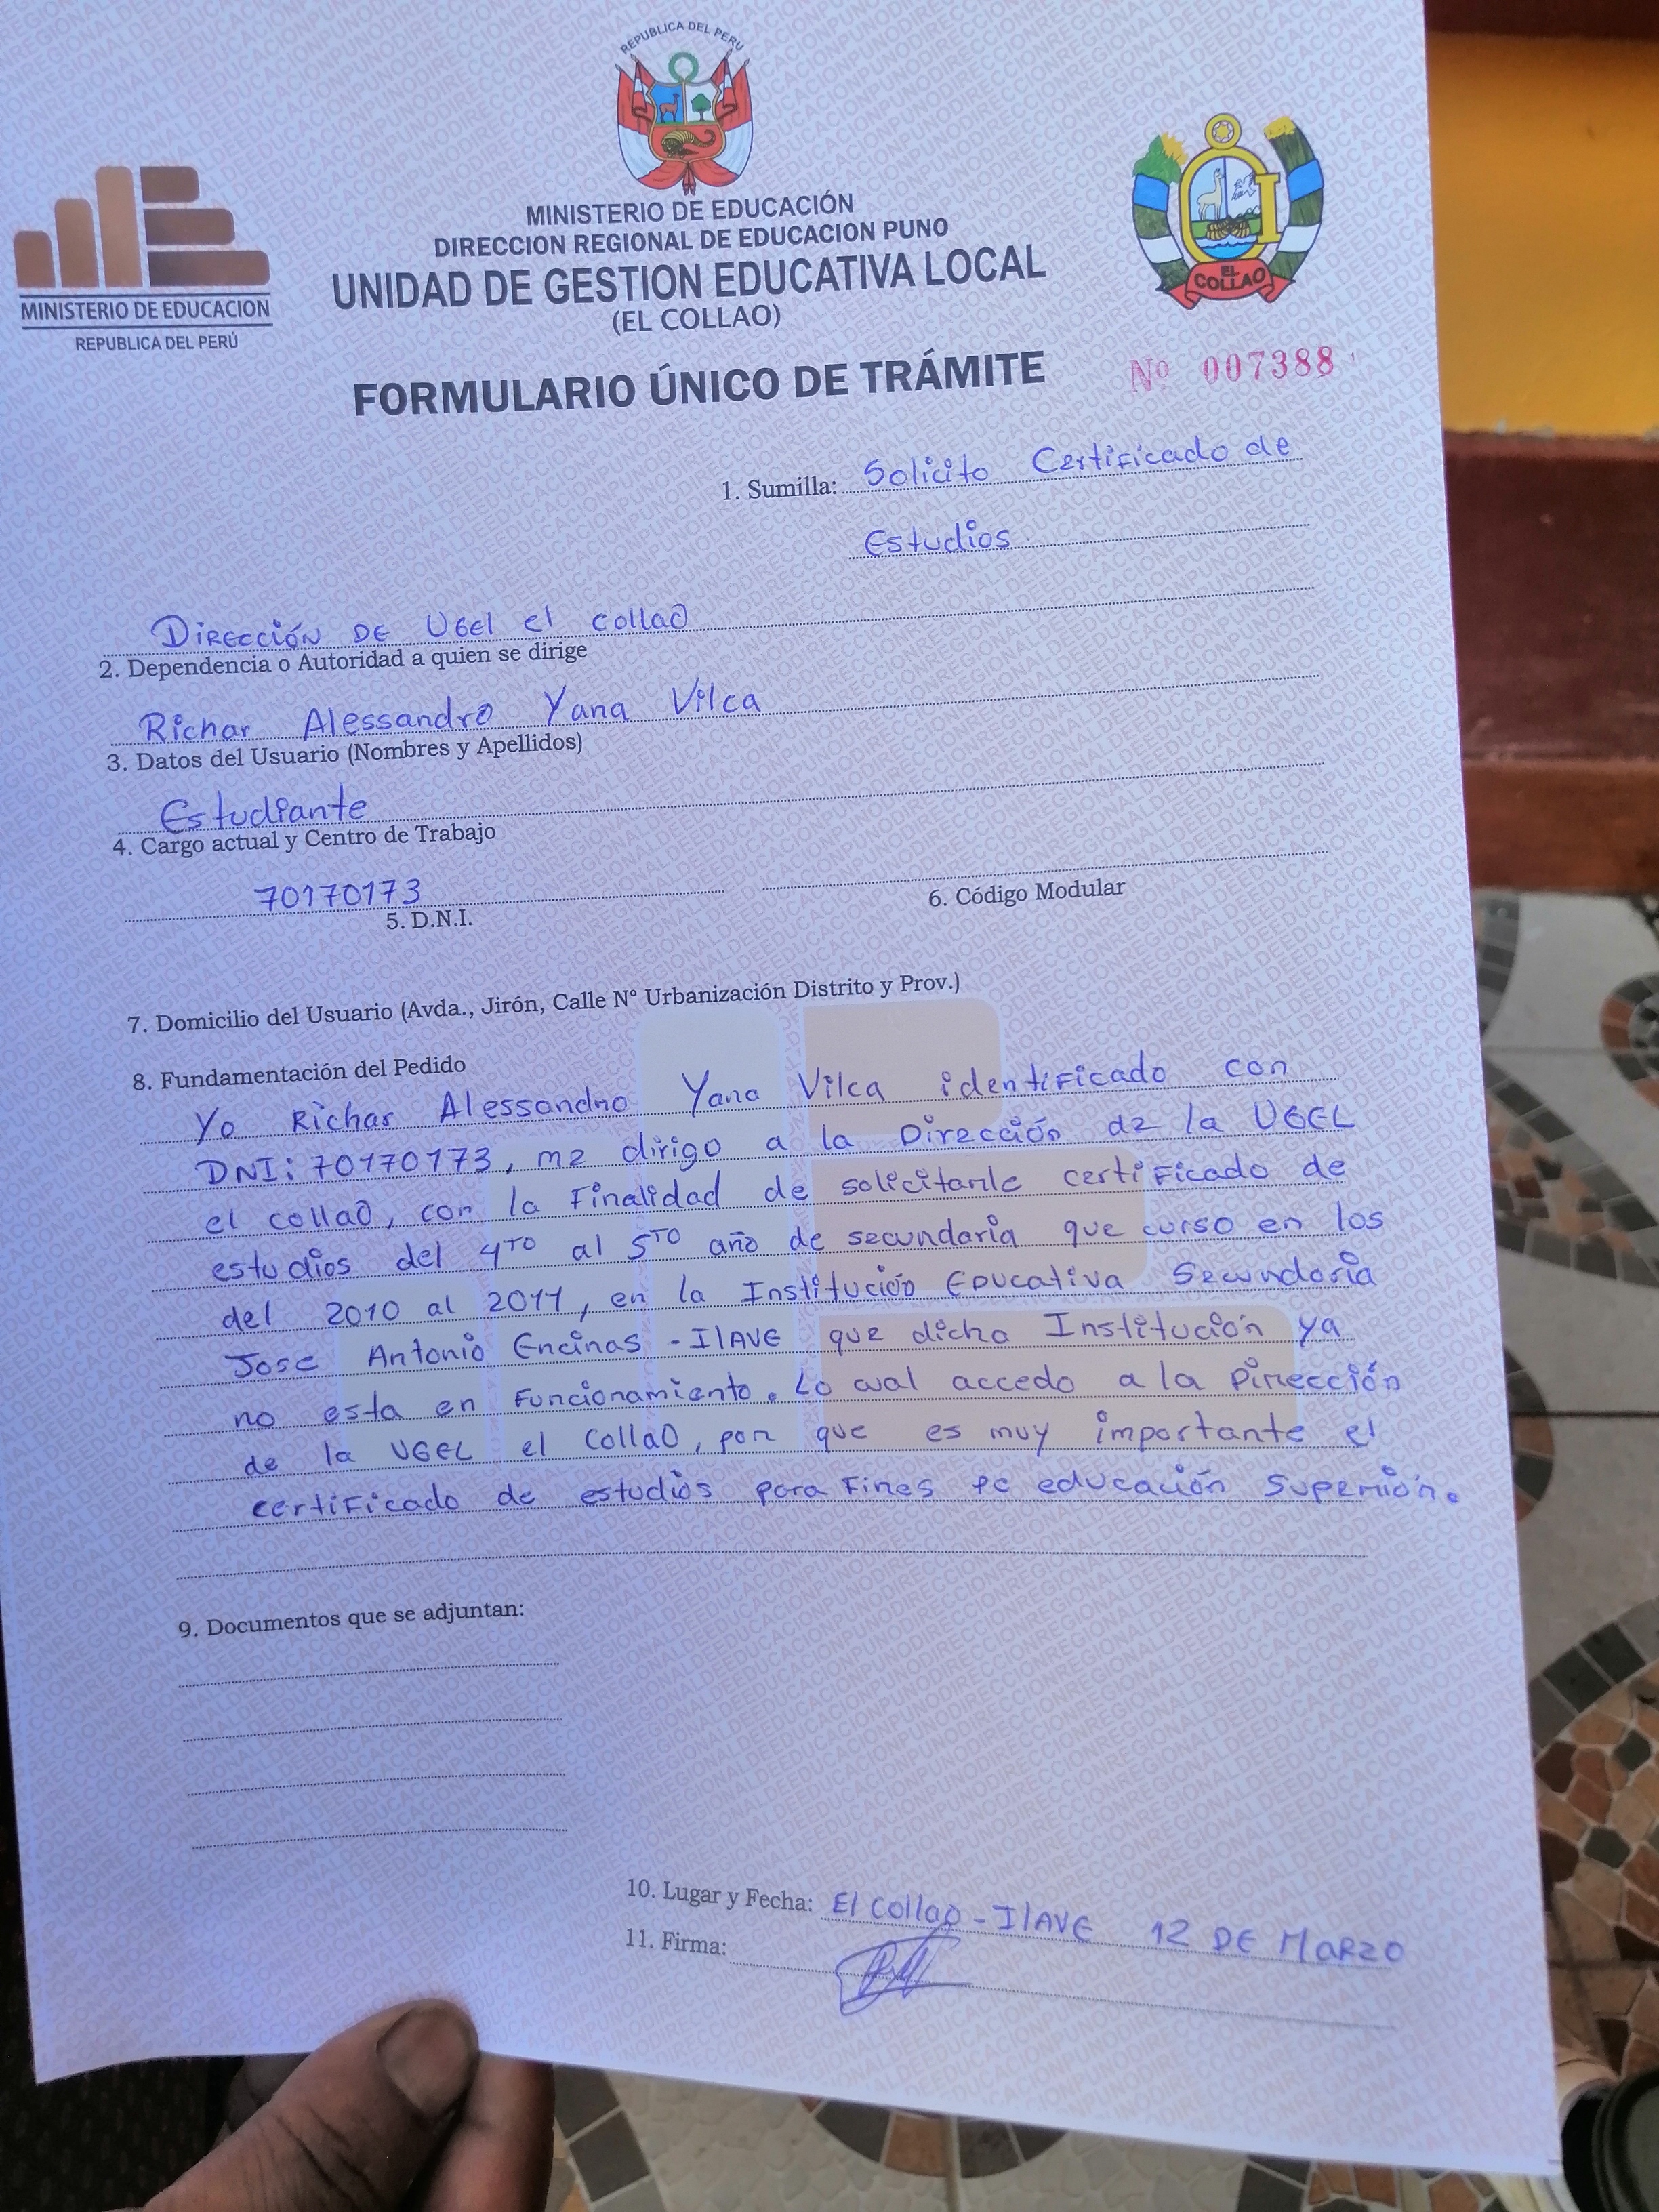 REPUBLICA DEL PERU
MINISTERIO DE EDUCACION
REPUBLICA DEL PERÚ
MINISTERIO DE EDUCACIÓN
DIRECCION REGIONAL DE EDUCACION PUNO
UNIDAD DE GESTION EDUCATIVA LOCAL
(EL COLLAO)
EL COLLAO
FORMULARIO ÚNICO DE TRÁMITE
Nº 007388
1. Sumilla: Solicito Certificado de
Estudios.
Dirección DE UGel el collao
2. Dependencia o Autoridad a quien se dirige
Richar Alessandro Yana Vilca
3. Datos del Usuario (Nombres y Apellidos)
Estudiante
4. Cargo actual y Centro de Trabajo
70170173
5. D.N.I.
6. Código Modular
7. Domicilio del Usuario (Avda., Jirón, Calle N° Urbanización Distrito y Prov.)
8. Fundamentación del Pedido
Yo Richar Alessandro Yana Vilca identificado con
DNI: 70170173, me dirigo a la Dirección de la UGEL
el collao, con la Finalidad de solicitarle certificado de
estudios del 4TO al 5TO año de secundaria que curso en los
del 2010 al 2011, en la Institución Educativa Secundaria
Jose Antonio Encinas - IlAVE que dicha Institución ya
no esta en Funcionamiento. Lo cual accedo a la Dirección
de la UGEL el Collao, por que es muy importante el
certificado de estudios para Fines de educación Superión.
9. Documentos que se adjuntan:
10. Lugar y Fecha: El Collao - IlAVE 12 DE MARZO
11. Firma: